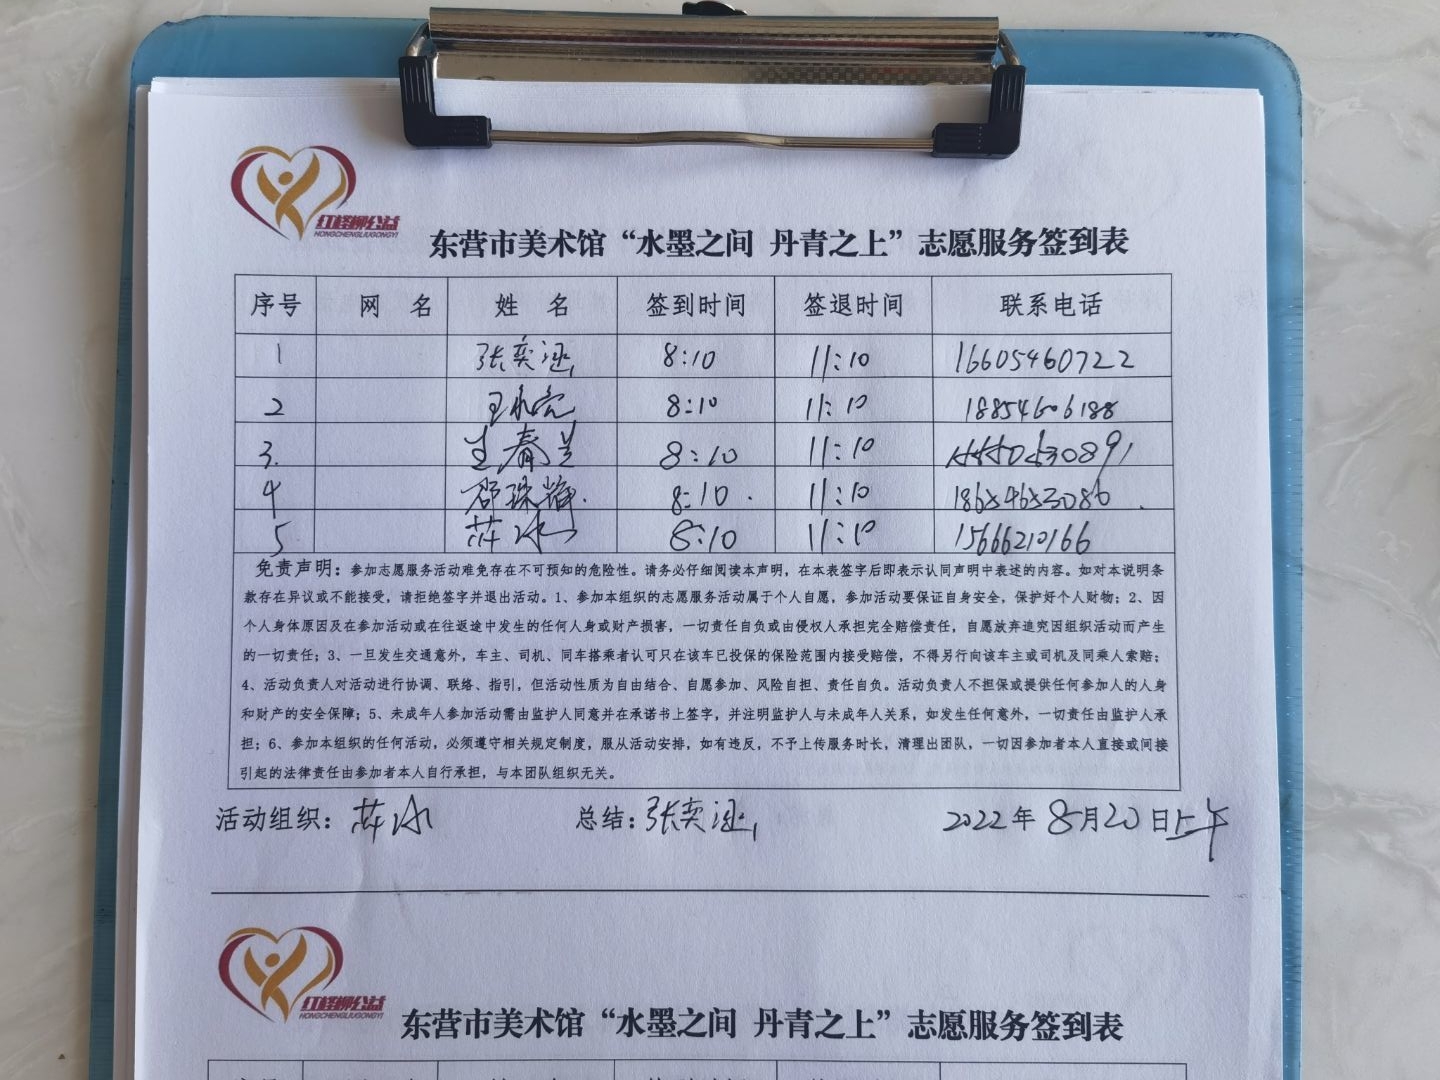 红柽柳公益
HONGCHENGLIUGONGYI
东营市美术馆“水墨之间 丹青之上”志愿服务签到表
序号 网 名 姓 名 签到时间 签退时间 联系电话
1 张奕涵 8:10 11:10 16605460722
2 8:10 11:10 18854606188
3. 生春兰 8:10 11:10
4 邵珠梅 8:10 11:10 18654653086
5 萍冰 8:10 11:10 15666210166
免责声明：参加志愿服务活动难免存在不可预知的危险性。请务必仔细阅读本声明，在本表签字后即表示认同声明中表述的内容。如对本说明条
款存在异议或不能接受，请拒绝签字并退出活动。1、参加本组织的志愿服务活动属于个人自愿，参加活动要保证自身安全，保护好个人财物；2、因
个人身体原因及在参加活动或在往返途中发生的任何人身或财产损害，一切责任自负或由侵权人承担完全赔偿责任，自愿放弃追究因组织活动而产生
的一切责任；3、一旦发生交通意外，车主、司机、同车搭乘者认可只在该车已投保的保险范围内接受赔偿，不得另行向该车主或司机及同乘人索赔；
4、活动负责人对活动进行协调、联络、指引，但活动性质为自由结合、自愿参加、风险自担、责任自负。活动负责人不担保或提供任何参加人的人身
和财产的安全保障；5、未成年人参加活动需由监护人同意并在承诺书上签字，并注明监护人与未成年人关系，如发生任何意外，一切责任由监护人承
担；6、参加本组织的任何活动，必须遵守相关规定制度，服从活动安排，如有违反，不予上传服务时长，清理出团队，一切因参加者本人直接或间接
引起的法律责任由参加者本人自行承担，与本团队组织无关。
活动组织：萍冰 总结：张奕涵 2022年8月20日上午
红柽柳公益
HONGCHENGLIUGONGYI
东营市美术馆“水墨之间 丹青之上”志愿服务签到表